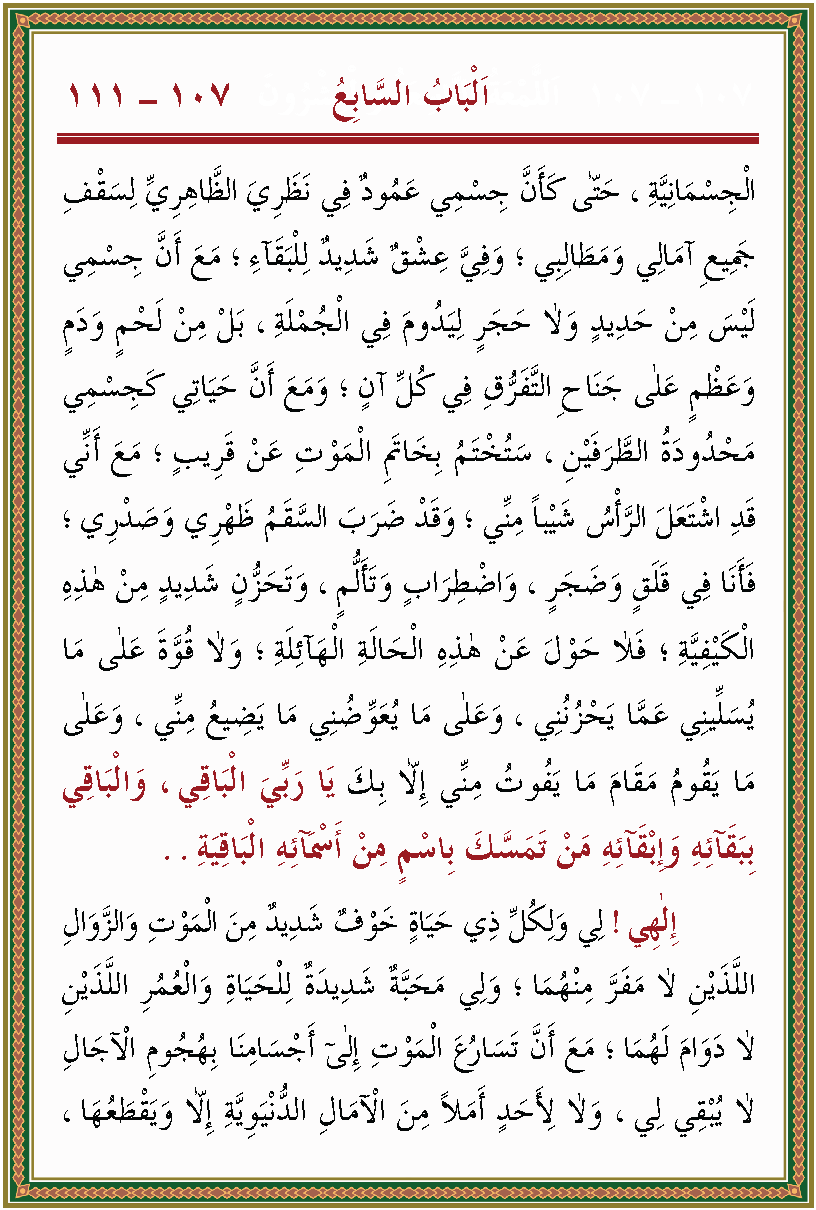 اَلْبَابُ السَّابِعُ ١٠٧ – ١١١
الْجِسْمَانِيَّةِ ، حَتّٰى كَأَنَّ جِسْمِي عَمُودٌ فِي نَظَرِيَ الظَّاهِرِيِّ لِسَقْفِ
جَمِيعِ آمَالِي وَمَطَالِبِي ؛ وَفِيَّ عِشْقٌ شَدِيدٌ لِلْبَقَآءِ ؛ مَعَ أَنَّ جِسْمِي
لَيْسَ مِنْ حَدِيدٍ وَلاٰ حَجَرٍ لِيَدُومَ فِي الْجُمْلَةِ ، بَلْ مِنْ لَحْمٍ وَدَمٍ
وَعَظْمٍ عَلٰى جَنَاحِ التَّفَرُّقِ فِي كُلِّ آنٍ ؛ وَمَعَ أَنَّ حَيَاتِي كَجِسْمِي
مَحْدُودَةُ الطَّرَفَيْنِ ، سَتُخْتَمُ بِخَاتَمِ الْمَوْتِ عَنْ قَرِيبٍ ؛ مَعَ أَنِّي
قَدِ اشْتَعَلَ الرَّأْسُ شَيْباً مِنِّي ؛ وَقَدْ ضَرَبَ السَّقَمُ ظَهْرِي وَصَدْرِي ؛
فَأَنَا فِي قَلَقٍ وَضَجَرٍ ، وَاضْطِرَابٍ وَتَأَلُّمٍ ، وَتَحَزُّنٍ شَدِيدٍ مِنْ هٰذِهِ
الْكَيْفِيَّةِ ؛ فَلاٰ حَوْلَ عَنْ هٰذِهِ الْحَالَةِ الْهَآئِلَةِ ؛ وَلاٰ قُوَّةَ عَلٰى مَا
يُسَلِّينِي عَمَّا يَحْزُنُنِي ، وَعَلٰى مَا يُعَوِّضُنِي مَا يَضِيعُ مِنِّي ، وَعَلٰى
مَا يَقُومُ مَقَامَ مَا يَفُوتُ مِنِّي إِلاّٰ بِكَ يَا رَبِّيَ الْبَاقِي ، وَالْبَاقِي
بِبَقَآئِهِ وَإِبْقَآئِهِ مَنْ تَمَسَّكَ بِاسْمٍ مِنْ أَسْمَآئِهِ الْبَاقِيَةِ . .
إِلٰهِي ! لِي وَلِكُلِّ ذِي حَيَاةٍ خَوْفٌ شَدِيدٌ مِنَ الْمَوْتِ وَالزَّوَالِ
اللَّذَيْنِ لاٰ مَفَرَّ مِنْهُمَا ؛ وَلِي مَحَبَّةٌ شَدِيدَةٌ لِلْحَيَاةِ وَالْعُمُرِ اللَّذَيْنِ
لاٰ دَوَامَ لَهُمَا ؛ مَعَ أَنَّ تَسَارُعَ الْمَوْتِ إِلٰىٓ أَجْسَامِنَا بِهُجُومِ الْآجَالِ
لاٰ يُبْقِي لِي ، وَلاٰ لِأَحَدٍ أَمَلاً مِنَ الْآمَالِ الدُّنْيَوِيَّةِ إِلاّٰ وَيَقْطَعُهَا ،